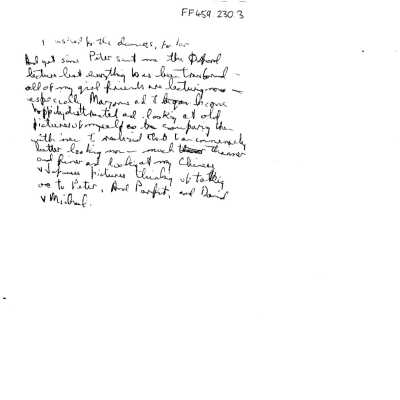 FF459 230 3
I wished for the dances, so far
And yet since Peter sent me the Oxford
lecture but everything has been transformed -
all of my girl friends are lecturing now -
especially Maryanne as I began become
distracted and looking at old
pictures of myself to compare them
with me I realized that I am immensely
better looking now - much thinner
and finer and looking at my Chinese
v Japanese pictures thinking of talking
to Peter, And Parfit, and David
v Michael.